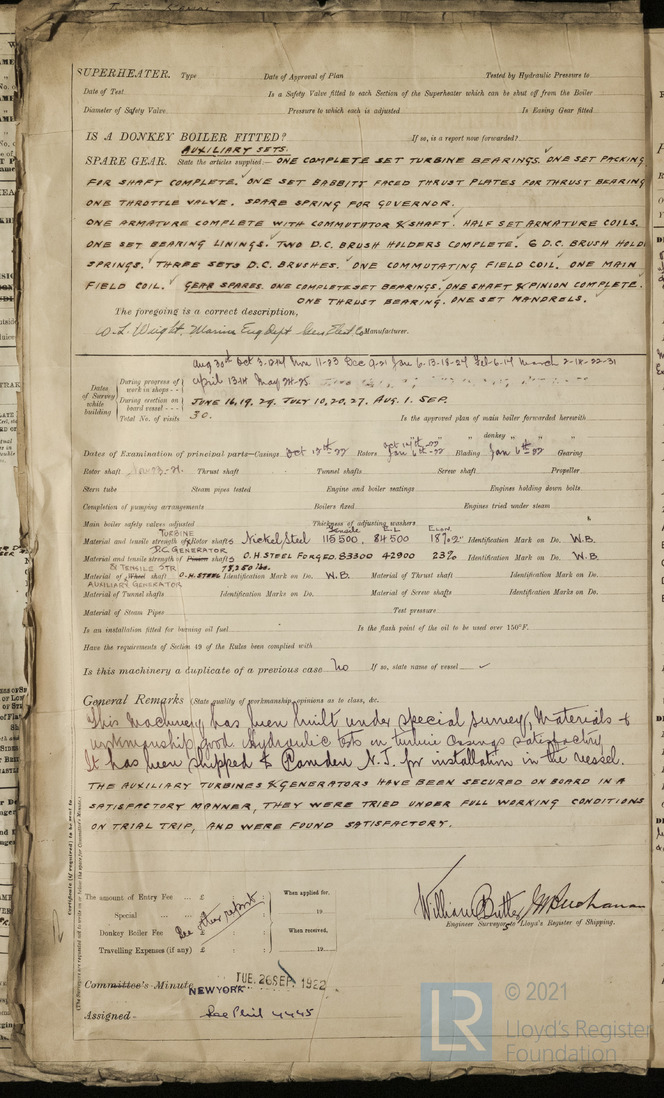 SUPERHEATER. Type Date of Approval of Plan Tested by Hydraulic Pressure to
Date of Test Is a Safety Valve fitted to each Section of the Superheater which can be shut off from the Boiler
Diameter of Safety Valve Pressure to which each is adjusted Is Easing Gear fitted
IS A DONKEY BOILER FITTED? If so, is a report now forwarded?
AUXILIARY SETS.
SPARE GEAR. State the articles supplied:— ONE COMPLETE SET TURBINE BEARINGS. ONE SET PACKING
FOR SHAFT COMPLETE. ONE SET BABBITT FACED THRUST PLATES FOR THRUST BEARING
ONE THROTTLE VALVE. SPARE SPRING FOR GOVERNOR.
ONE ARMATURE COMPLETE WITH COMMUTATOR & SHAFT. HALF SET ARMATURE COILS.
ONE SET BEARING LININGS. TWO D.C. BRUSH HOLDERS COMPLETE. 6 D.C. BRUSH HOLD
SPRINGS. THREE SETS D.C. BRUSHES. ONE COMMUTATING FIELD COIL. ONE MAIN
FIELD COIL. GEAR SPARES. ONE COMPLETE SET BEARINGS. ONE SHAFT & PINION COMPLETE.
ONE THRUST BEARING. ONE SET MANDRELS.
The foregoing is a correct description,
W. L. Wright. Marine Eng Dept Gen Elect. Co Manufacturer.
Dates of Survey while building
During progress of work in shops - - Aug 30th Oct 3-12-14 Nov 11-23 Dec 9-21 Jan 6-13-18-24 Feb 6-14 March 2-18-22-31
April 13th May 24-25
During erection on board vessel - - - JUNE 16, 19, 29. JULY 10, 20, 27. AUG. 1. SEP.
Total No. of visits 30. Is the approved plan of main boiler forwarded herewith
" donkey " "
Dates of Examination of principal parts—Casings Oct 12th Rotors Jan 6th-22 Blading Jan 6th 22 Gearing
Rotor shaft Thrust shaft Tunnel shafts Screw shaft Propeller
Stern tube Steam pipes tested Engine and boiler seatings Engines holding down bolts
Completion of pumping arrangements Boilers fixed Engines tried under steam
Main boiler safety valves adjusted Thickness of adjusting washers
TURBINE Tensile E.L. Elon.
Material and tensile strength of Rotor shafts Nickel Steel 115500. 84500 18% 2" Identification Mark on Do. W.B.
D.C. GENERATOR
Material and tensile strength of Pinion shafts O.H. STEEL FORGED. 83300 42900 23% Identification Mark on Do. W.B.
& TENSILE STR. 78,250 lbs.
Material of Wheel shaft O.H. STEEL Identification Mark on Do. W.B. Material of Thrust shaft Identification Mark on Do.
AUXILIARY GENERATOR
Material of Tunnel shafts Identification Marks on Do. Material of Screw shafts Identification Marks on Do.
Material of Steam Pipes Test pressure
Is an installation fitted for burning oil fuel Is the flash point of the oil to be used over 150°F.
Have the requirements of Section 49 of the Rules been complied with
Is this machinery a duplicate of a previous case No If so, state name of vessel
General Remarks (State quality of workmanship, opinions as to class, &c.
This machinery has been built under special survey, Materials &
workmanship good. Hydraulic tests on turbine casings satisfactory
It has been shipped to Camden N.J. for installation in the vessel.
THE AUXILIARY TURBINES & GENERATORS HAVE BEEN SECURED ON BOARD IN A
SATISFACTORY MANNER, THEY WERE TRIED UNDER FULL WORKING CONDITIONS
ON TRIAL TRIP, AND WERE FOUND SATISFACTORY.
Certificate (if required) to be sent to
(The Surveyors are requested not to write on or below the space for Committee's Minute.)
The amount of Entry Fee ... £ : : When applied for,
Special ... ... £ : : 19
Donkey Boiler Fee ... £ : : When received,
Travelling Expenses (if any) £ : : 19
See other report.
William Butler J M Buchanan
Engine Surveyors to Lloyd's Register of Shipping.
Committee's Minute NEW YORK TUE. 26 SEP. 1922
Assigned See Phil 4445
LR © 2021
Lloyd's Register
Foundation